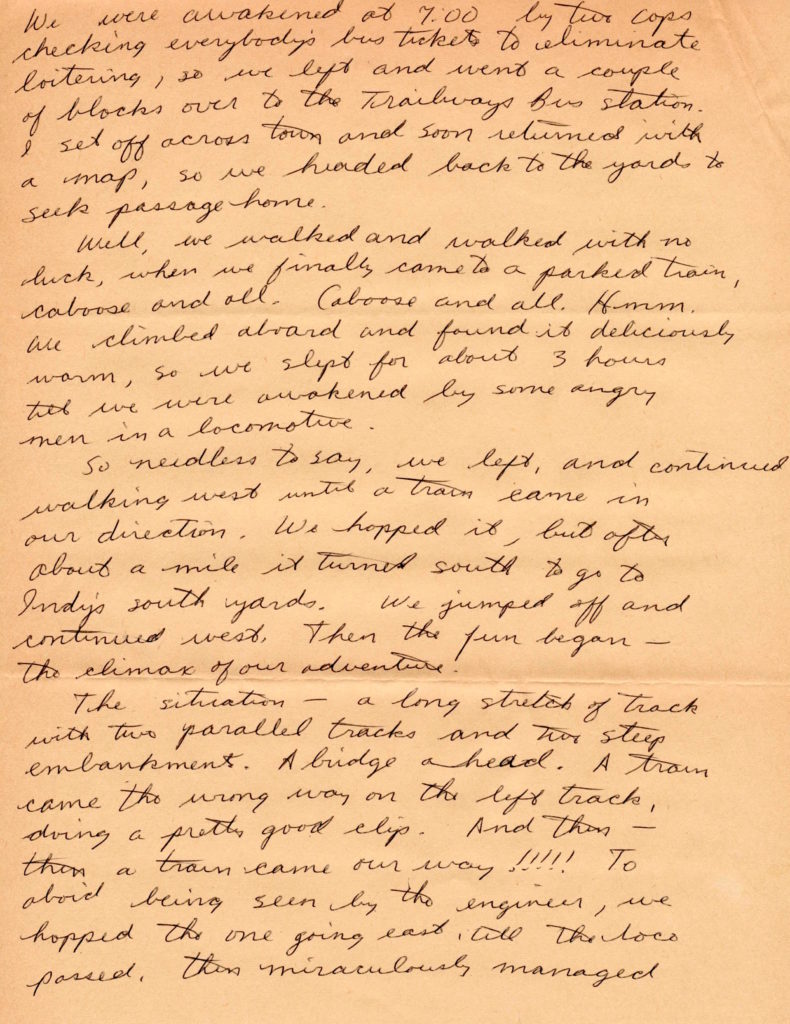 We were awakened at 7:00 by two cops
checking everybody's bus tickets to eliminate
loitering, so we left and went a couple
of blocks over to the Trailways Bus station.
I set off across town and soon returned with
a map, so we headed back to the yards to
seek passage home.
Well, we walked and walked with no
luck, when we finally came to a parked train,
caboose and all. Caboose and all. Hmm.
We climbed aboard and found it deliciously
warm, so we slept for about 3 hours
till we were awakened by some angry
men in a locomotive.
So needless to say, we left, and continued
walking west until a train came in
our direction. We hopped it, but after
about a mile it turned south to go to
Indy's south yards. We jumped off and
continued west. Then the fun began —
the climax of our adventure.
The situation — a long stretch of track
with two parallel tracks and two steep
embankments. A bridge ahead. A train
came the wrong way on the left track,
doing a pretty good clip. And then —
then a train came our way !!!!! To
avoid being seen by the engineer, we
hopped the one going east till the loco
passed, then miraculously managed